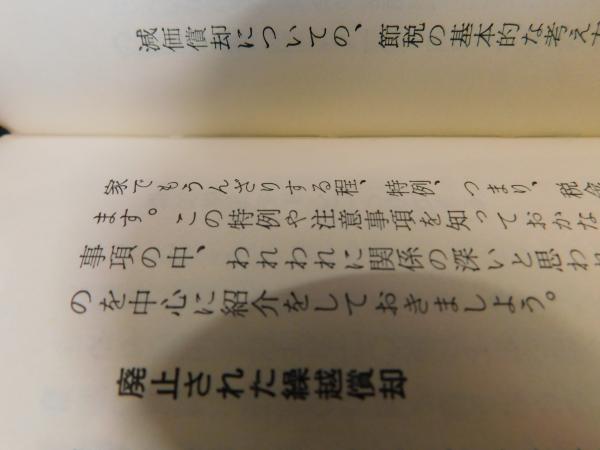 減価償却についての、節税の基本的な考え
家でもうんざりする程、特例、つまり、税
ます。この特例や注意事項を知っておかな
事項の中、われわれに関係の深いと思われ
のを中心に紹介をしておきましょう。
廃止された繰越償却